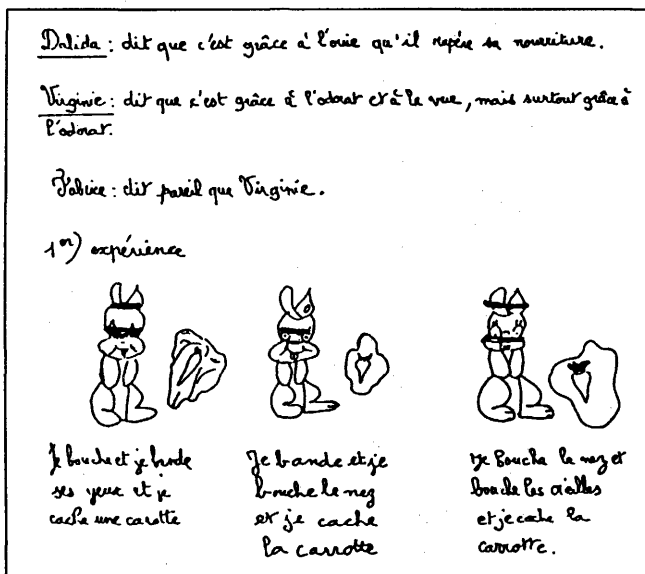 Dalida : dit que c'est grâce à l'ouie qu'il repère sa nourriture.
Virginie : dit que c'est grâce à l'odorat et à la vue, mais surtout grâce à
l'odorat.
Fabrice : dit pareil que Virginie.
1er) expérience
Je bouche et je bande
ses yeux et je
cache une carotte
Je bande et je
bouche le nez
et je cache
la carrotte
Je bouche le nez et
bouche les oreilles
et je cache la
carrotte.